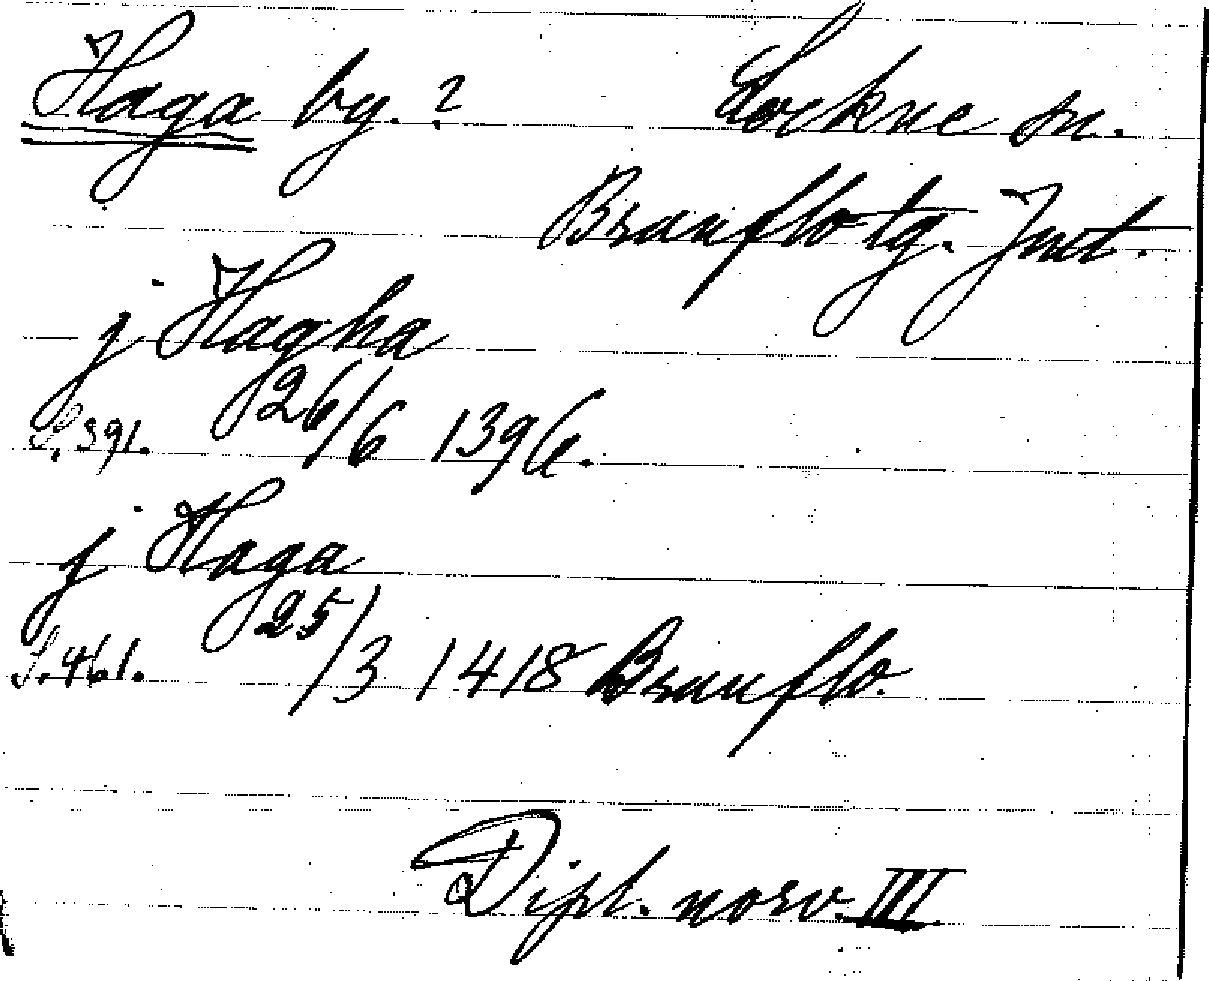 Haga by. ? Lockne sn.
Brunflo tg. Jmt.
j Hagha
S. 391. 26/6 1396.
j Haga
S. 461. 25/3 1418 Brunflo.
Dipl. norv. III